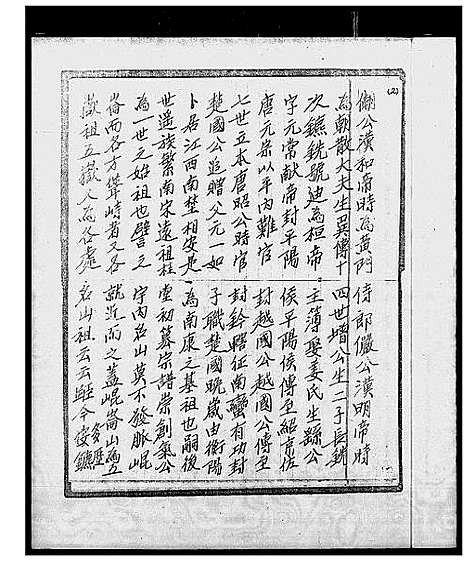 (2)
儼公漢和帝時為黃門侍郎儼公漢明帝時
為朝散大夫生巽傳十四世增公生二子長銑
次鑣銑號迪為桓帝主簿娶姜氏生縣公
字元常獻帝封平陽侯平陽侯傳至紹京佐
唐元宗以平內難官封越國公越國公傳至
七世立本唐昭公時官封鈐轄征南蠻有功封
楚國公追贈父元一如子職楚國晚歲由衡陽
卜居江西南埜相安是為南康之基祖也嗣後
世遠族繁南宋遠祖桂堂初纂宗譜崇創氣公
為一世之始祖也譬之宇內名山莫不發脈崐
崙而各方聳峙者又各就近而之蓋崐崙山為五
嶽祖五嶽又為各處名山祖云云歷今